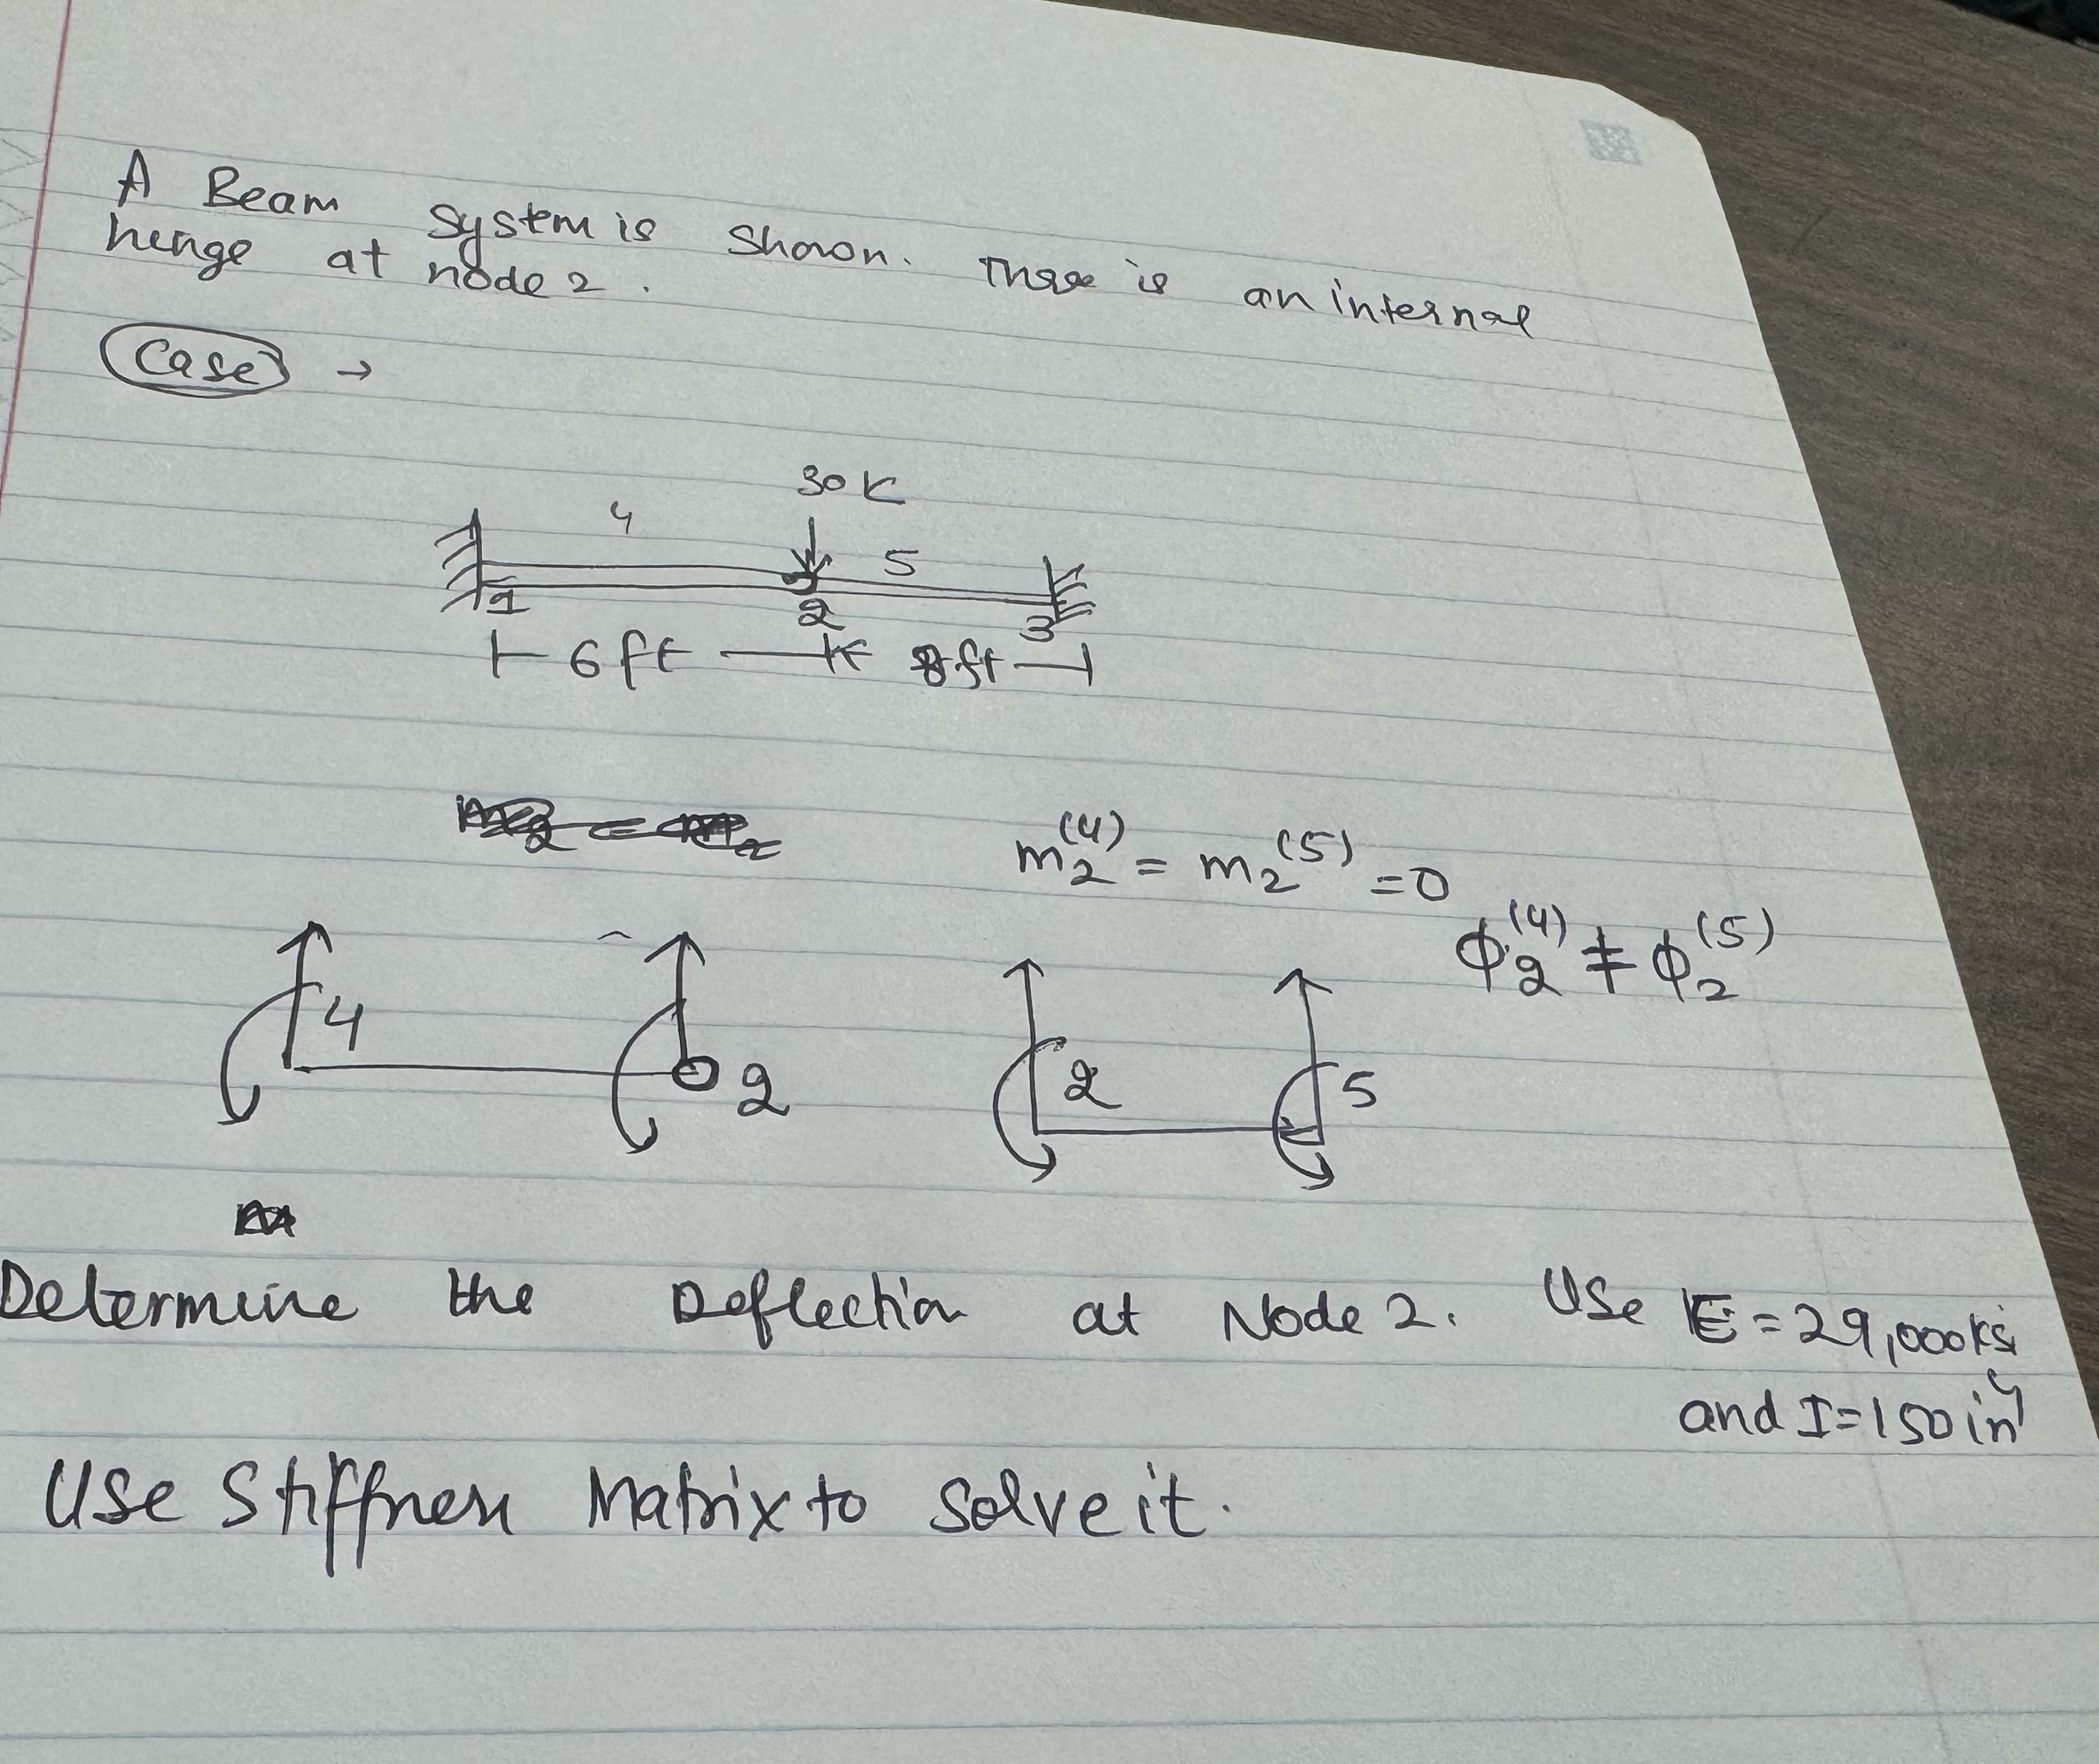 A Beam system is shown. There is an internal
henge at node 2.
Case →
30 K
4
5
1
2
3
6 ft
8ft
m₂⁽⁴⁾ = m₂⁽⁵⁾ = 0
ϕ₂⁽⁴⁾ ≠ ϕ₂⁽⁵⁾
4 2 2 5
Determine the Deflection at Node 2. Use E = 29,000 ksi
and I = 150 in⁴
Use Stiffness Matrix to solve it.